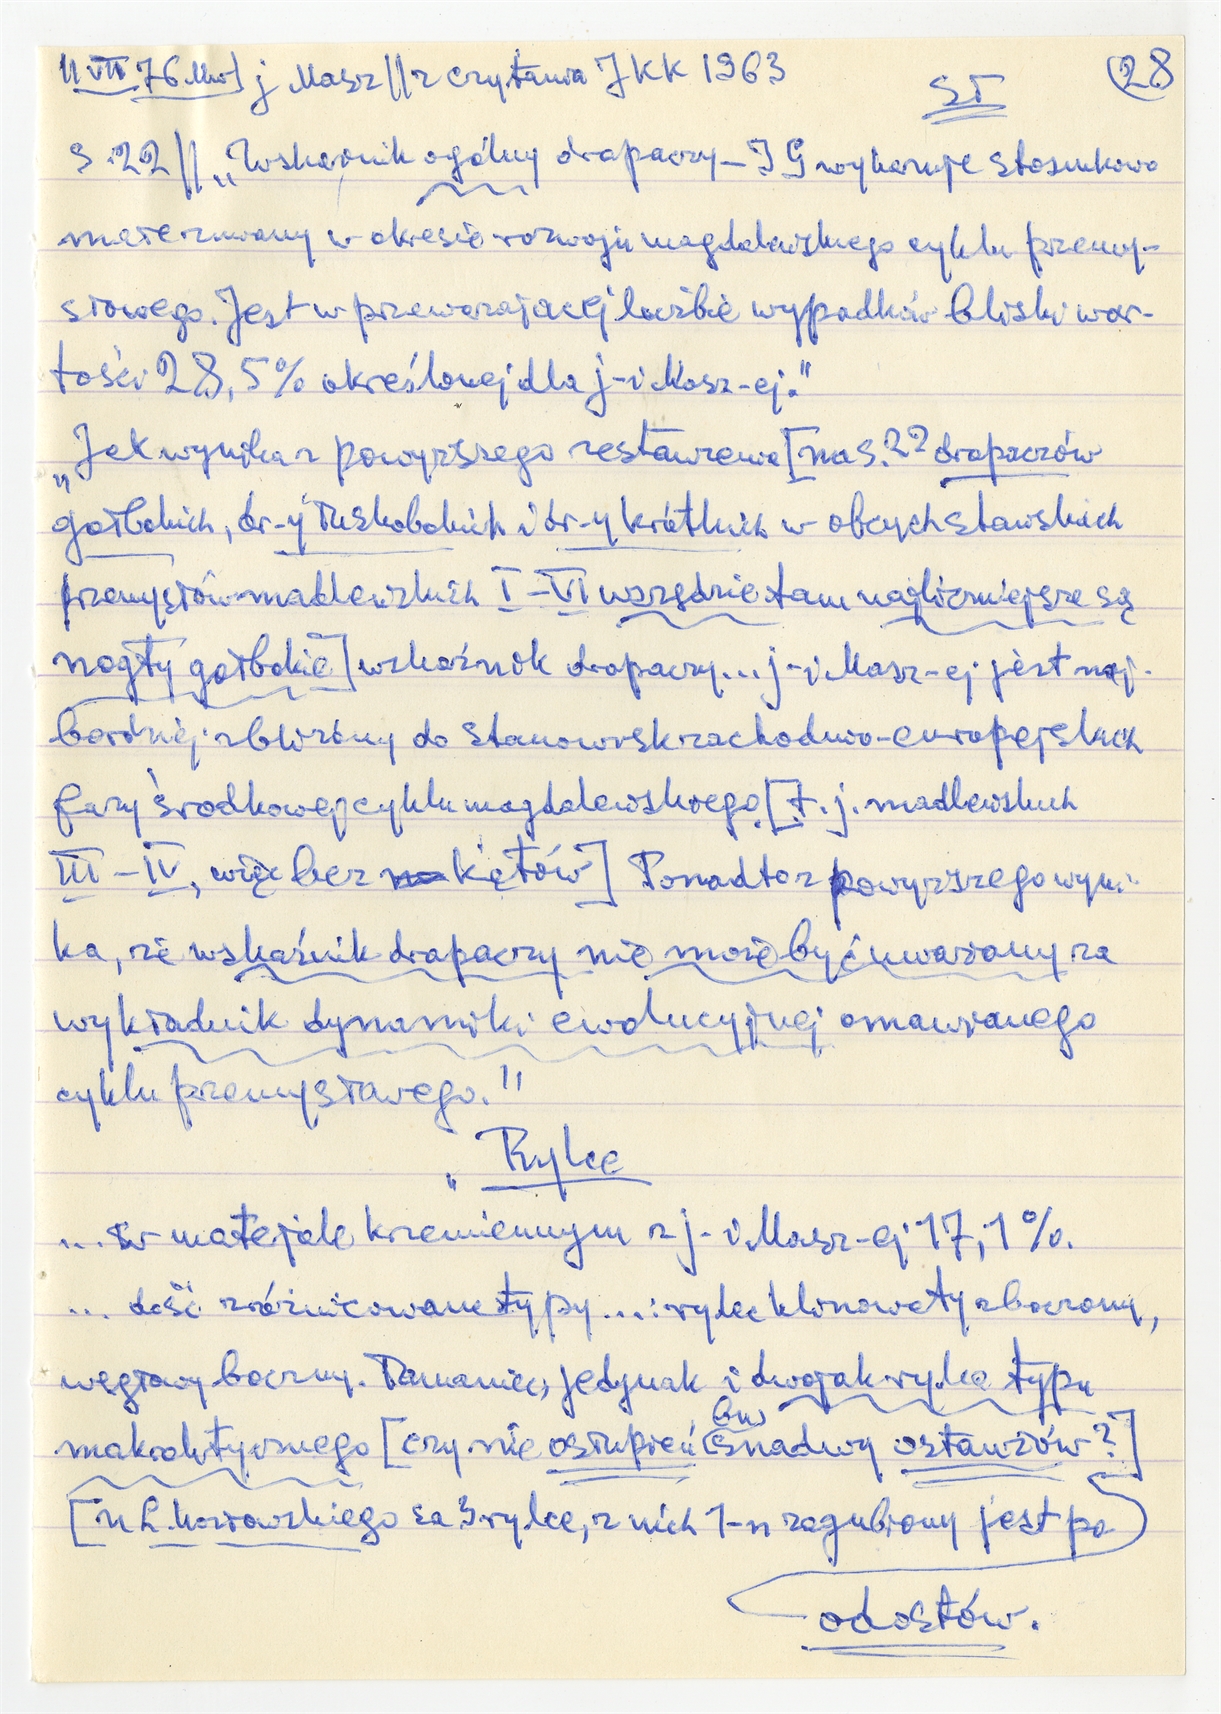 11 VII 76 Mor] j Masz || z czytania JKK 1963
28
ST
s. 22 || „Wskaźnik ogólny drapaczy – IG wykazuje stosunkowo
małe zmiany w okresie rozwoju magdaleńskiego cyklu przemy-
słowego. Jest w przeważającej liczbie wypadków bliski war-
tości 28,5% określonej dla j-i Masz-ej."
„Jak wynika z powyższego zestawienia [na s. 22 drapaczów
gałbokich, dr-y łuskobokich i dr-y krótkich w obcych stawskich
przemysłów madlewskich I – VI wszędzie tam najliczniejsze są
nogły gałbokie] wskaźnik drapaczy... j-i Masz-ej jest naj-
bardziej zbliżony do stanowisk zachodnio-europejskich
fazy środkowej cyklu magdaleńskiego [t. j. madlewskich
III – IV, więc bez kętów] Ponadto z powyższego wyni-
ka, że wskaźnik drapaczy nie może być uważany za
wykładnik dynamiki ewolucyjnej omawianego
cyklu przemysłowego."
„Rylce
... w materjale krzemiennym z j-i Masz-ej 17,1%.
... dość zróżnicowane typy...: rylec klinowaty zboczony,
węgłowy boczny. Łamaniec, jedynak i dwojak rylca typu
makrolitycznego [czy nie ostupień bw
snadwy ostawiów?]
[u L. Kozłowskiego są 3 rylce, z nich 1-n zagubiony jest po
odostów.